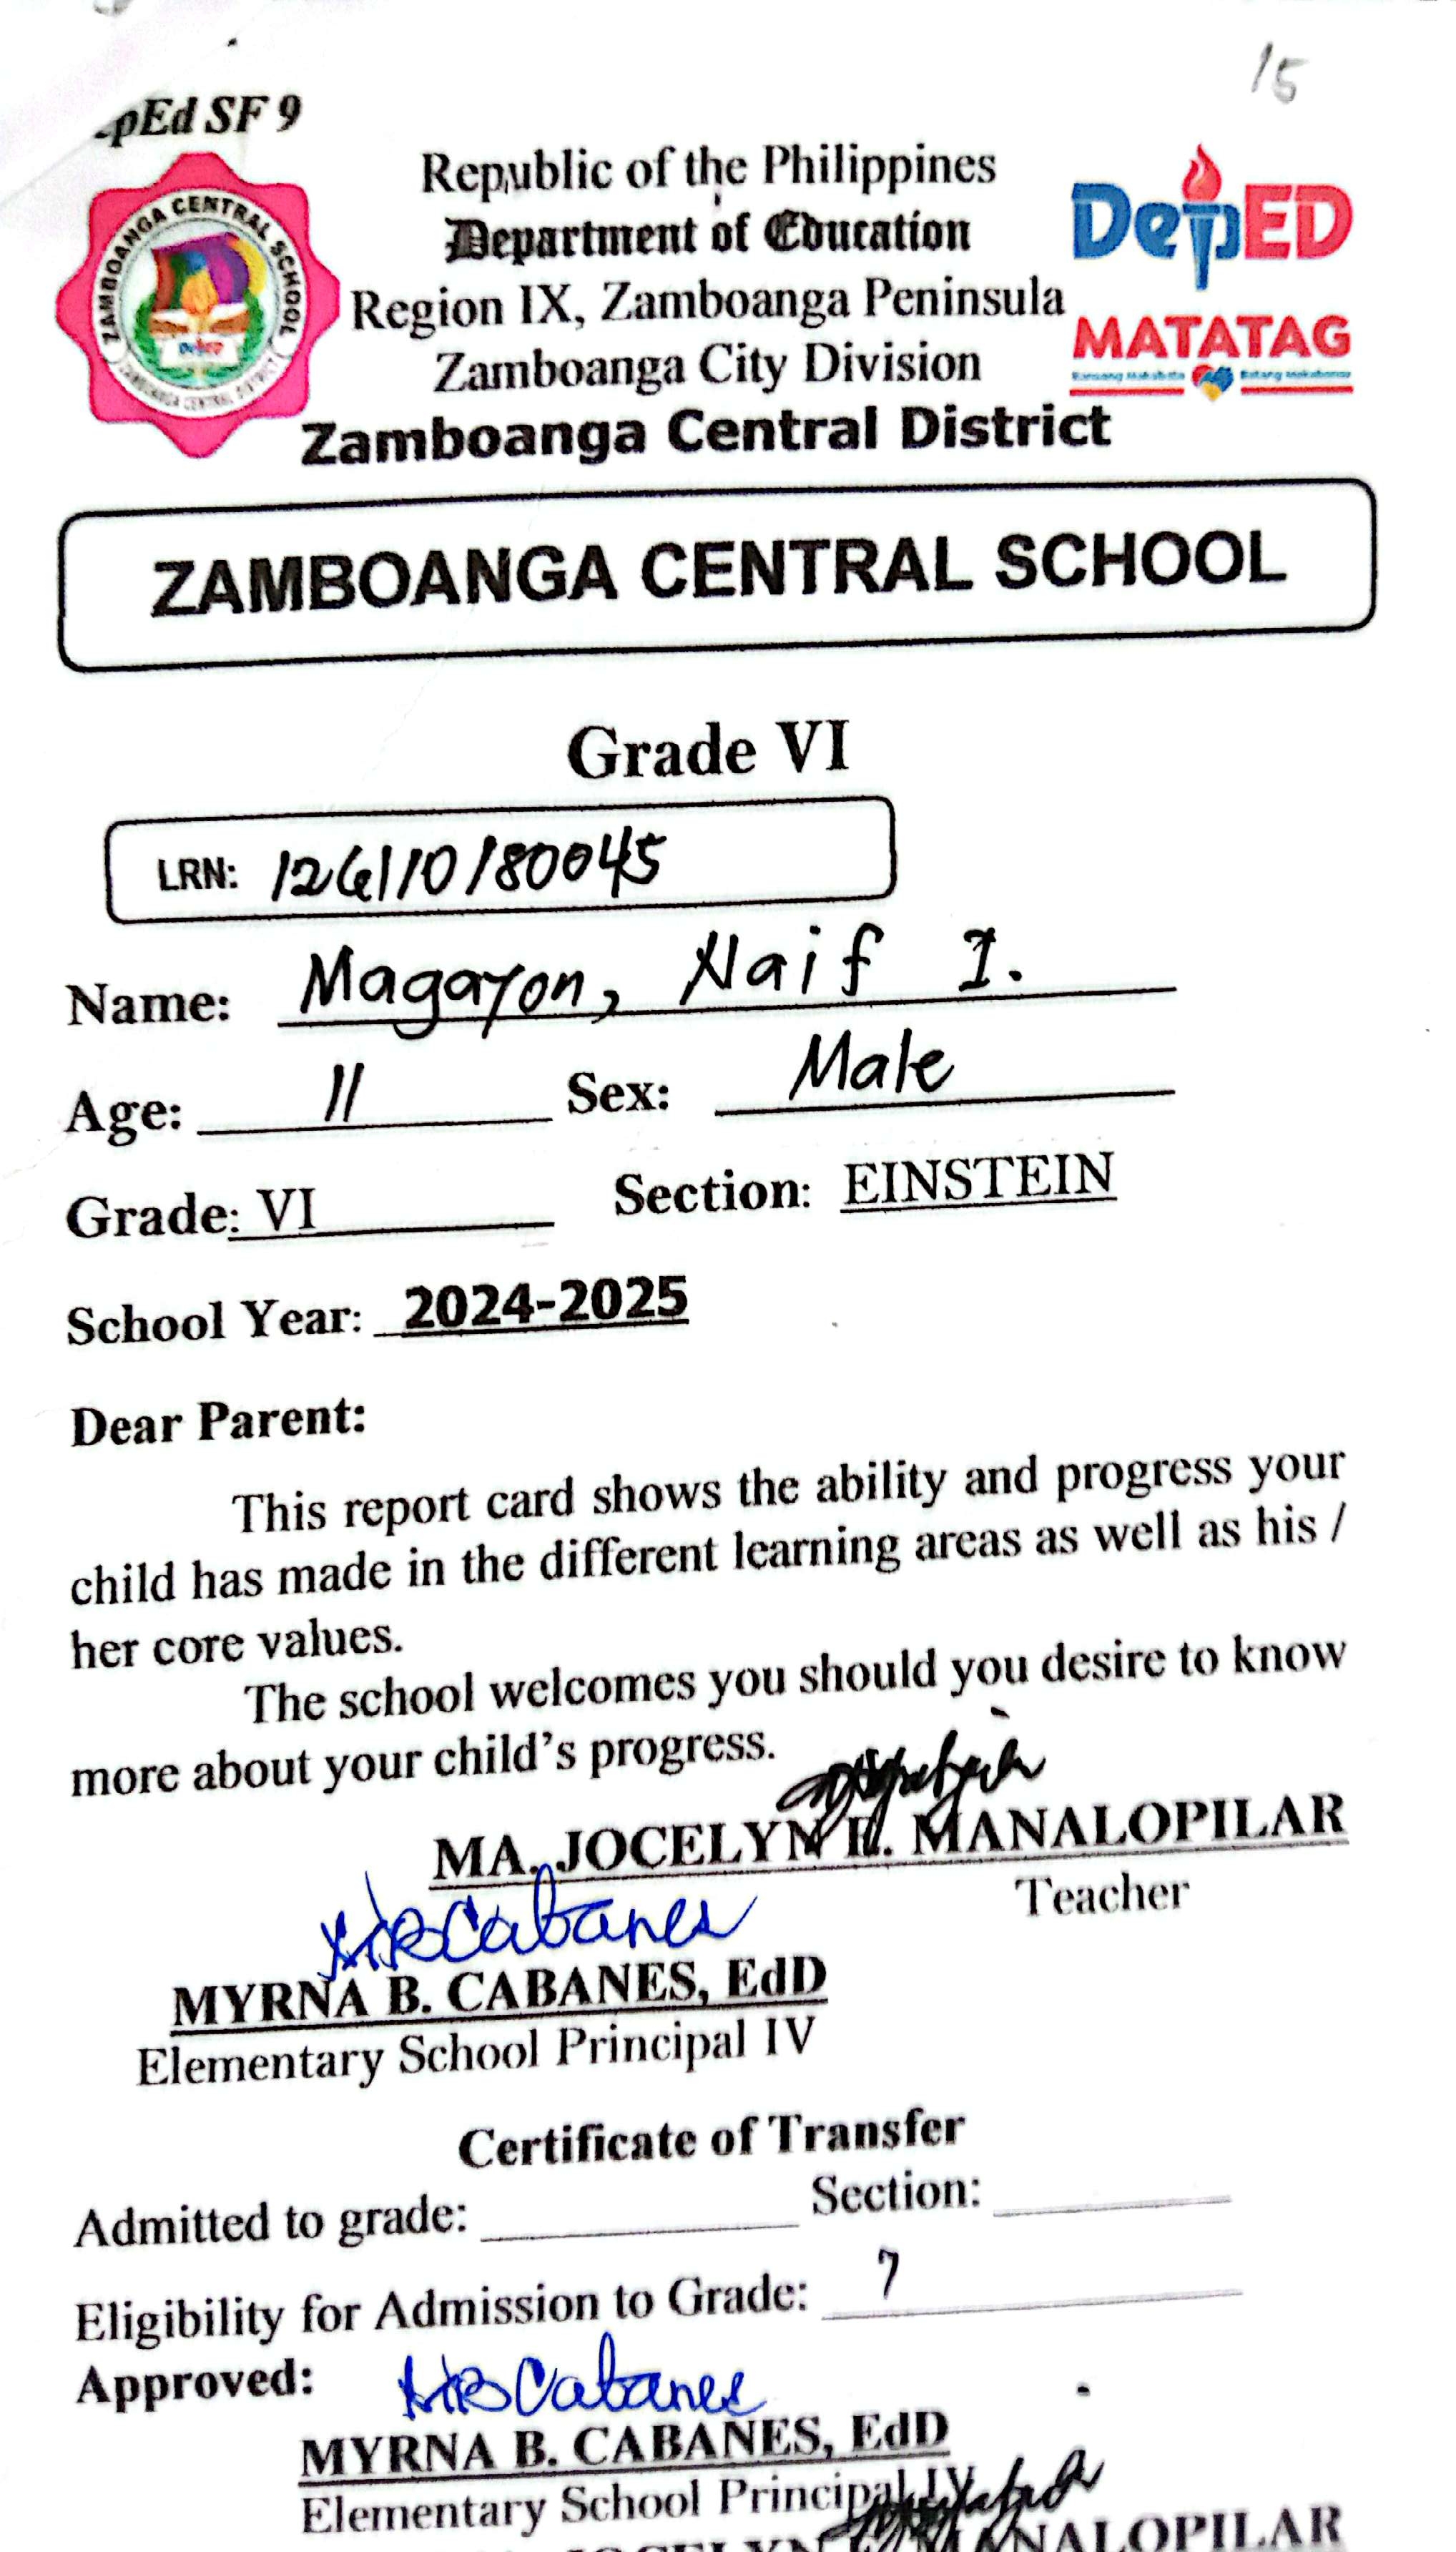 15
pEd SF 9
Republic of the Philippines
Department of Education
Region IX, Zamboanga Peninsula
Zamboanga City Division
Zamboanga Central District
ZAMBOANGA CENTRAL SCHOOL
DepED
MATATAG
Bansang Makabata Batang Makabansa
ZAMBOANGA CENTRAL SCHOOL
Grade VI
LRN: 126110180045
Name: Magayon, Naif I.
Age: 11 Sex: Male
Grade: VI Section: EINSTEIN
School Year: 2024-2025
Dear Parent:
This report card shows the ability and progress your
child has made in the different learning areas as well as his /
her core values.
The school welcomes you should you desire to know
more about your child's progress.
MA. JOCELYN MANALOPILAR
Teacher
MBCabanes
MYRNA B. CABANES, EdD
Elementary School Principal IV
Certificate of Transfer
Admitted to grade: Section:
Eligibility for Admission to Grade: 7
Approved: MBCabanes
MYRNA B. CABANES, EdD
Elementary School Principal IV
JOCELYN MANALOPILAR